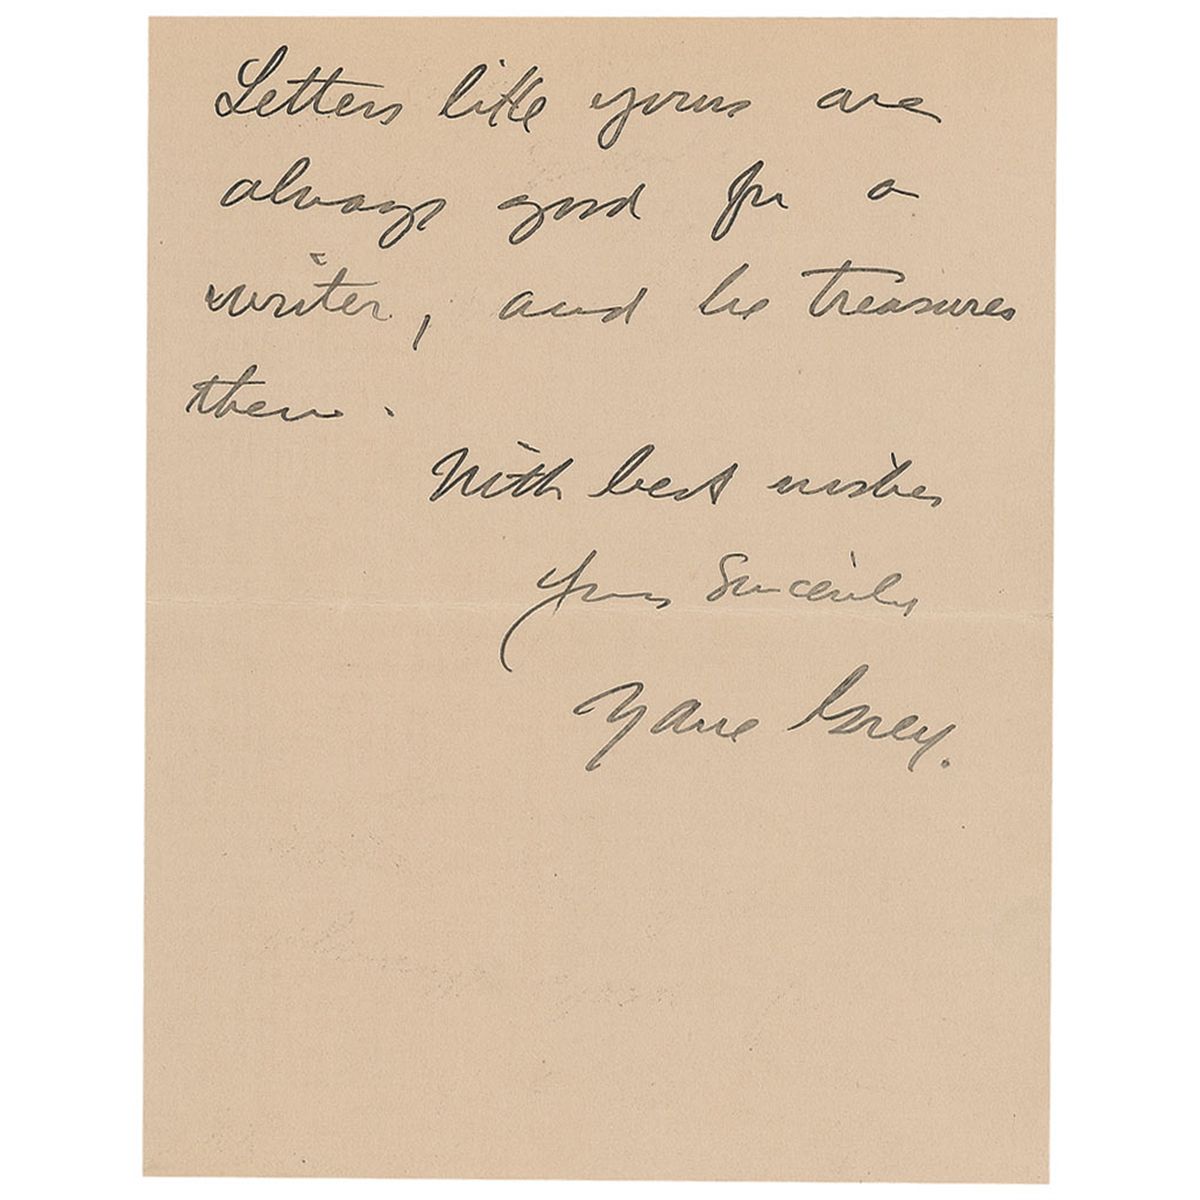 Letters like yours are
always good for a
writer, and he treasures
them.
With best wishes
Yours Sincerely
Zane Grey.